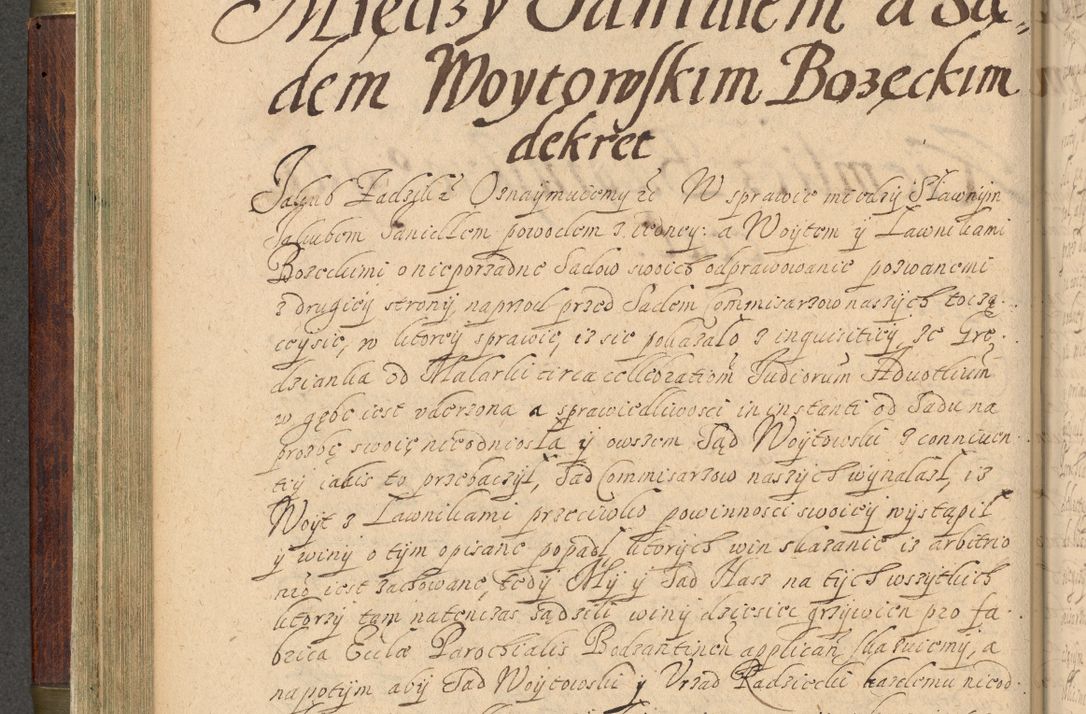 Między Daniulem a Są„
dem Woytowskim Bozęckim
dekret
Jakub Zadzik etc Oznaymuiemy że W sprawie między Sławnym
Jakubem Daniellem powodem z iedney: a Woytem y Ławnikami
Bozeckimi o nieporządne Sądow swoich odprawowanie pozwanemi
z drugiey strony, naprzod przed Sądem Commisarzow naszych toczą
ceysie, w ktorey sprawie, iż sie pokazało z inquisitiey, że Grę
dzianka od Malarki circa collocationem Judiorum Aduotlium
w gębę iest vderzona a sprawiedliwosci in instanti od Sądu na
prozbę swoię nieodniosła y owszem Sąd Woytowski z conniuen
tiy iakis to przebaczył, Sąd Commisarzow naszych wynalazł, iż
Woyt z Ławnikami przeciwko powinnosci swoiey wystąpił
y winy o tym opisane popadł, ktorych win skazanie iż arbitrio
nrō iest zachowane, tedy My y Sąd Nasz na tych wszytkich
ktorzy tam natenczas sądzili winy dziesięc grzywien pro fa
brica Eccłæ Parochialis Bodzantinen applicań skazuiemy, a
napotym aby Sąd Woytowski y Vrząd Radziecki każdemu nieod